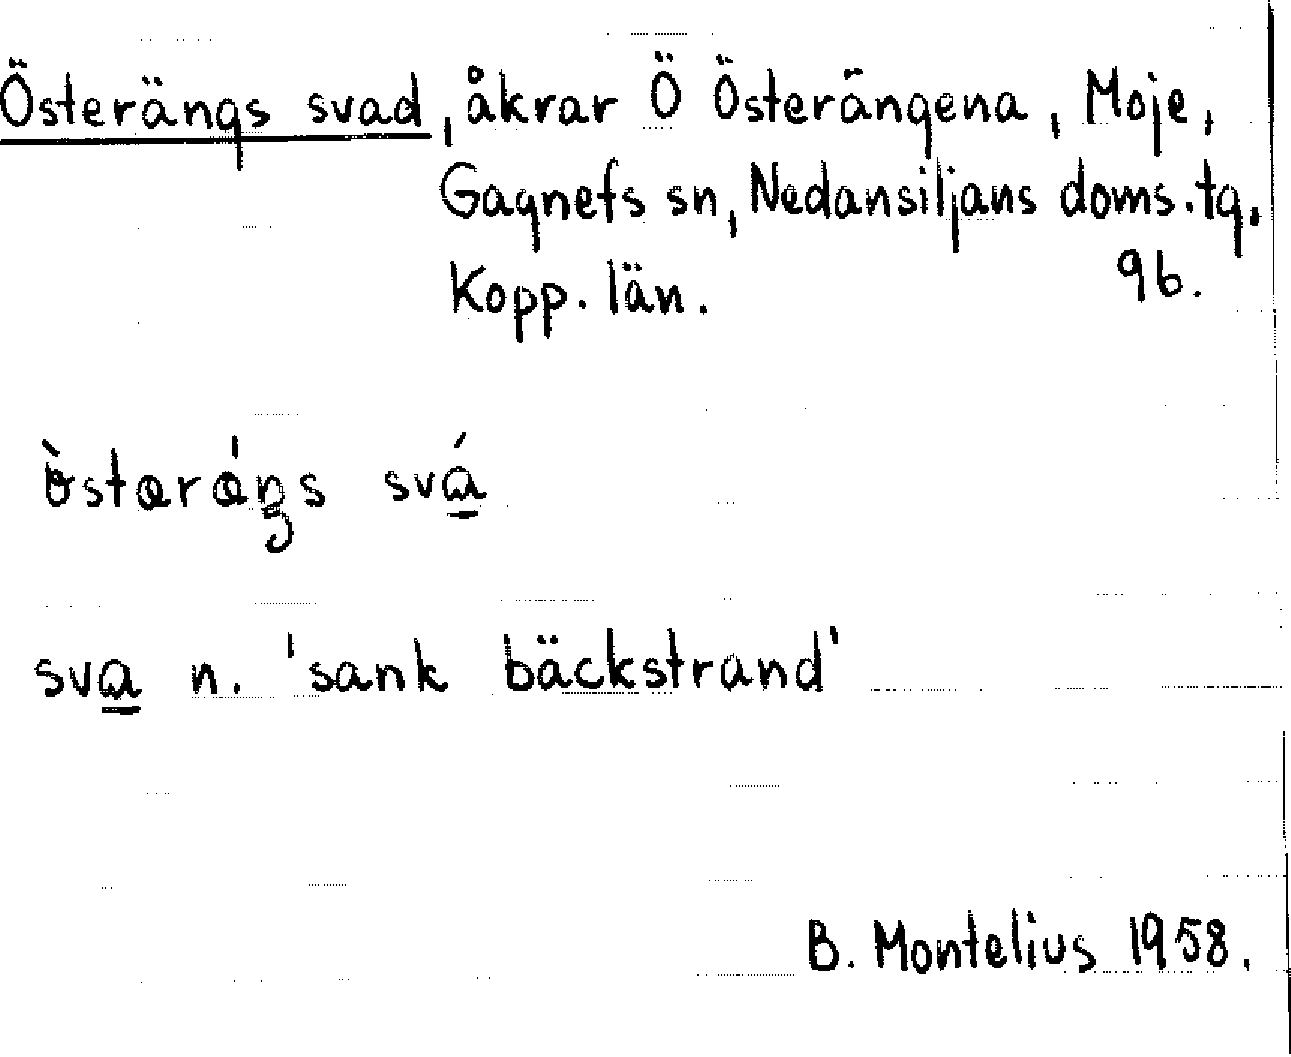 Österängs svad, åkrar Ö Österängena, Moje,
Gagnefs sn, Nedansiljans doms.tg.
Kopp. län. 96.
sva n. 'sank bäckstrand'
B. Montelius 1958.